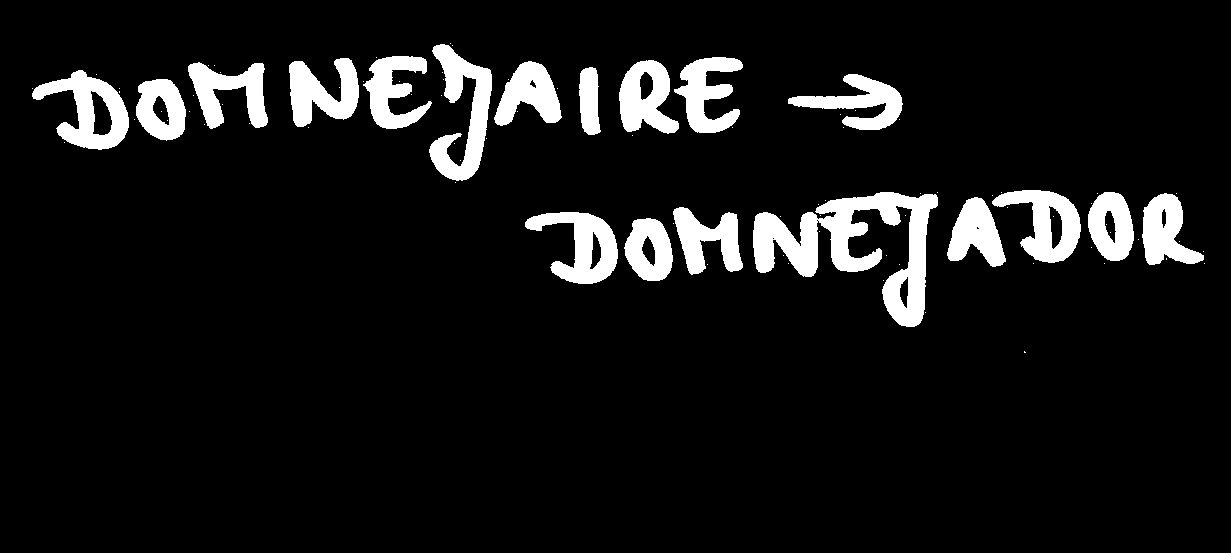 DOMNEJAIRE →
DOMNEJADOR